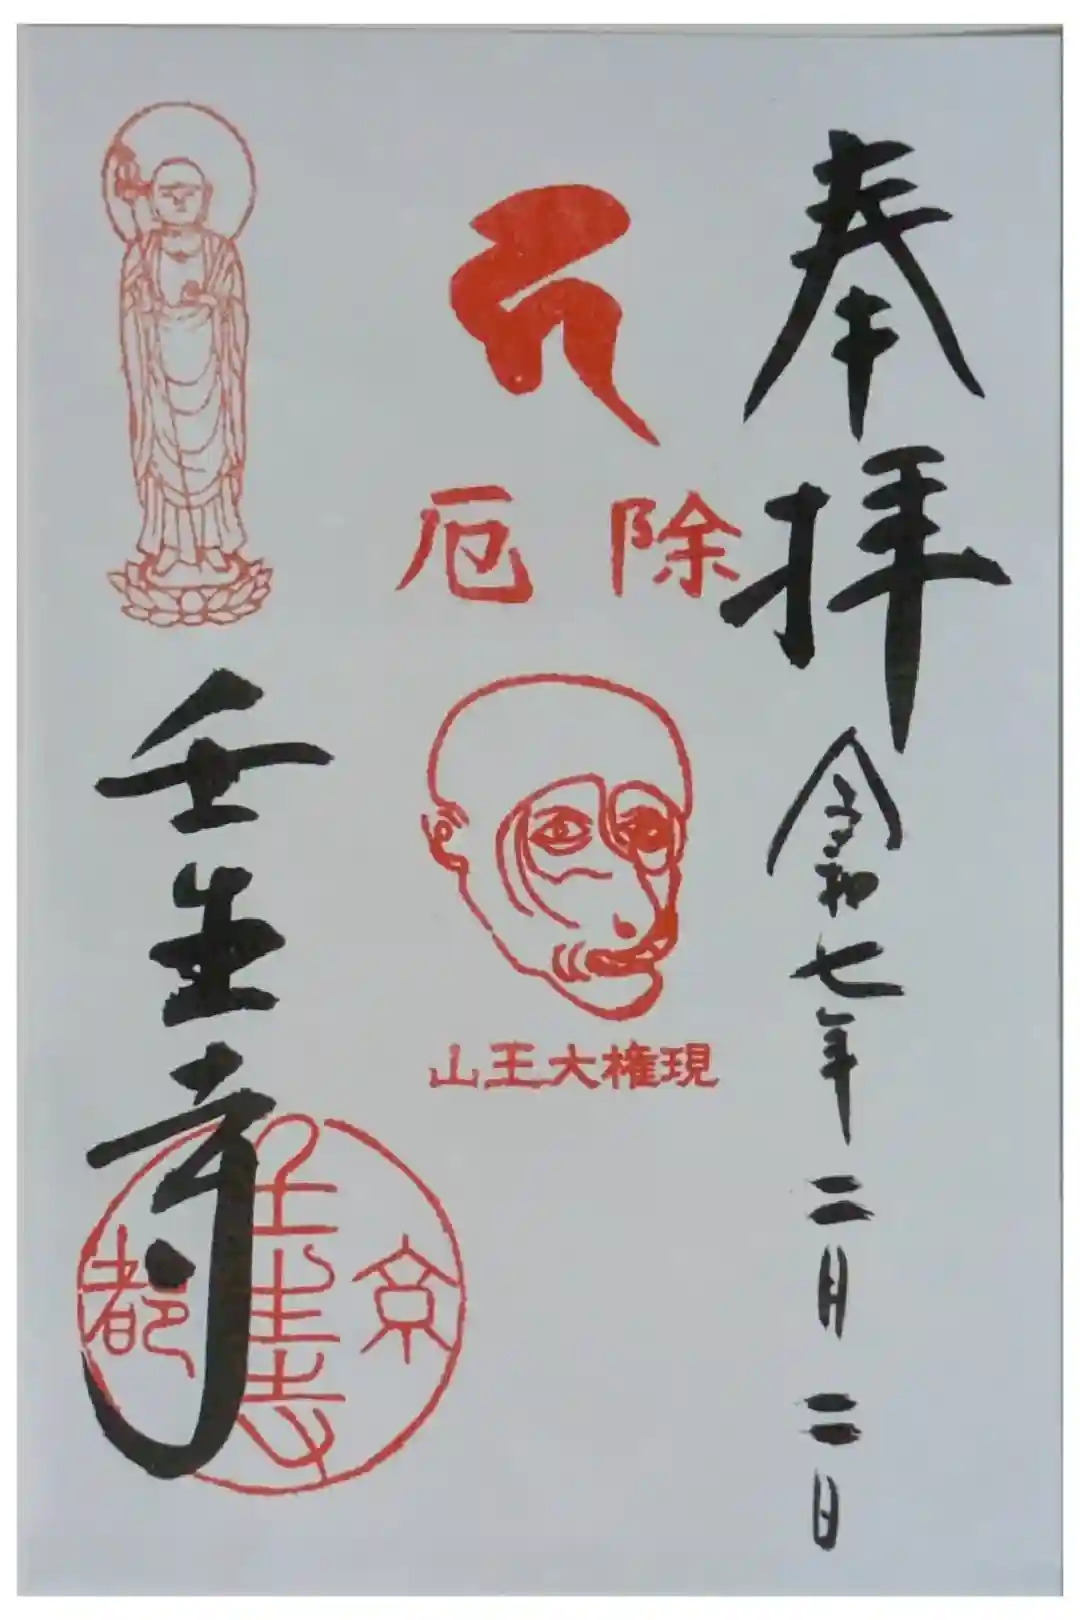 奉拝
令和七年二月二日
除厄
山王大権現
壬生寺
京
壬生寺
都